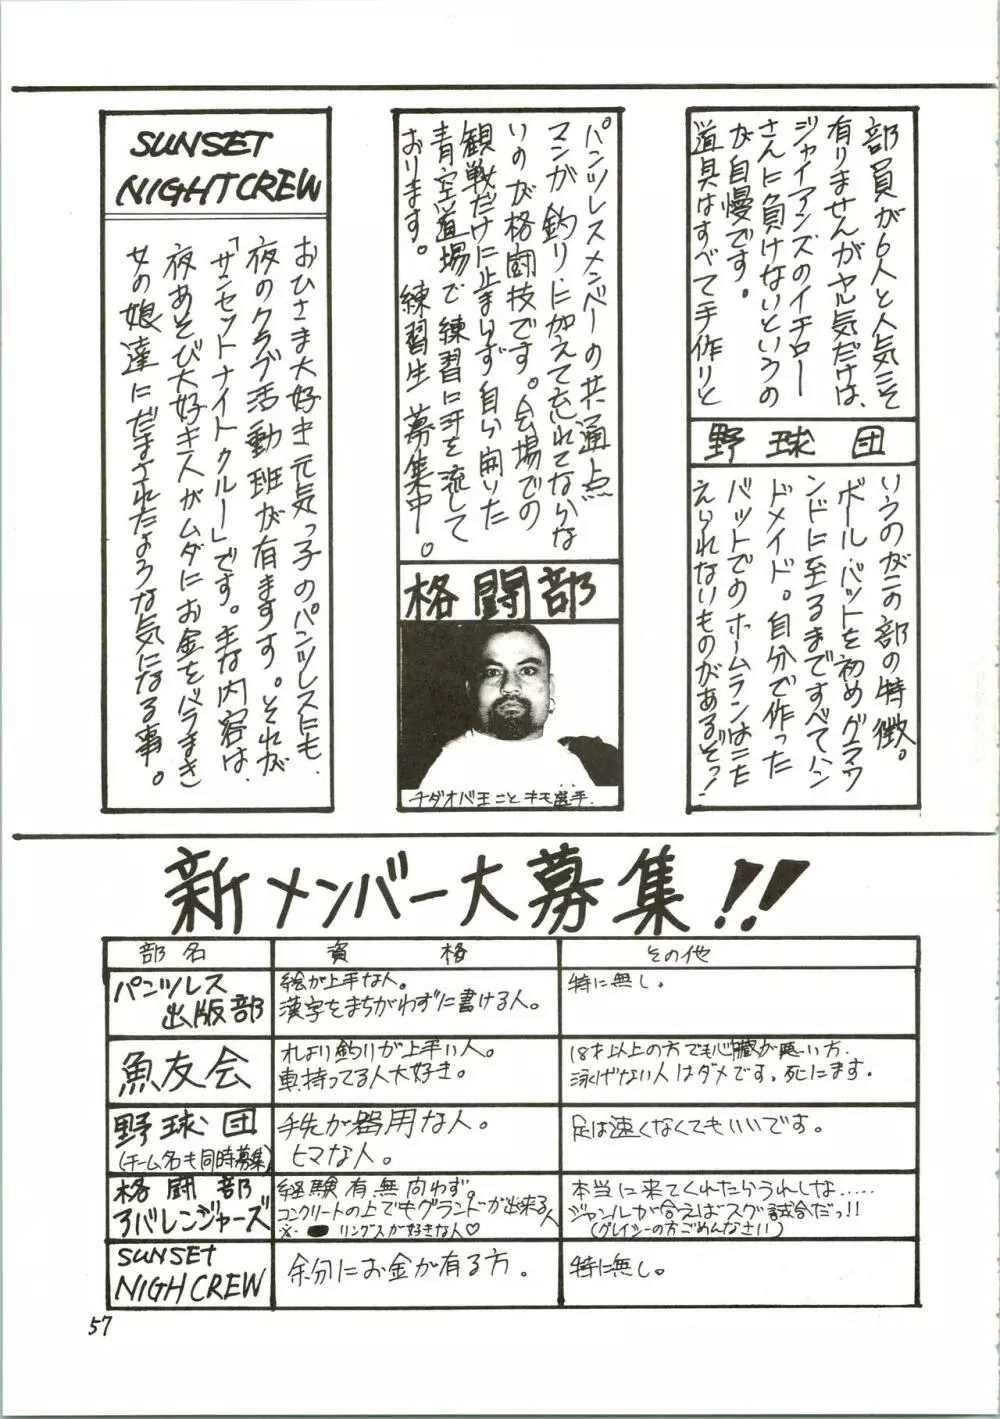 部員が6人と人気こそ
有りませんがヤル気だけは、
ジャイアンズのイチロー
さんに負けないというの
が自慢です。
道具はすべて手作りと
野球団
いうのがこの部の特徴。
ボールバットを初めグラウ
ンドに至るまですべてハン
ドメイド。自分で作った
バットでのホームランはこた
えられないものがあるぞっ！
パンツレスメンバーの共通点
マンガ、釣りに加えて忘れてならな
いのが格闘技です。会場での
観戦だけに止まらず自ら開いた
青空道場で練習に汗を流して
おります。練習生募集中。
格闘部
チダオバ王こと キモ選手.
SUNSET
NIGHTCREW
おひさま大好き元気っ子のパンツレスにも、
夜のクラブ活動班が有ますす。それが
「サンセットナイトクルー」です。主な内容は、
夜あそび大好き人がムダにお金をバラまき
女の娘達にだまされたような気になる事。
新メンバー大募集!!
部名 資格 その他
パンツレス
出版部
絵が上手な人。
漢字をまちがわずに書ける人。
特に無し.
魚友会
れより釣りが上手い人。
車持ってる人大好き。
18才以上の方でも心臓が悪い方.
泳げない人はダメです。死にます.
野球団
(チーム名も同時募集)
手先が器用な人。
ヒマな人。
足は速くなくてもいいです。
格闘部
アバレンジャーズ
経験有無問わず。
コンクリートの上でもグランドが出来る人
※ リングスが好きな人♡
本当に来てくれたらうれしな.....
ジャンルが合えばスグ試合だっ!!
(グレイシーの方ごめんなさい)
SUNSET
NIGHCREW
余分にお金が有る方.
特に無し。
57